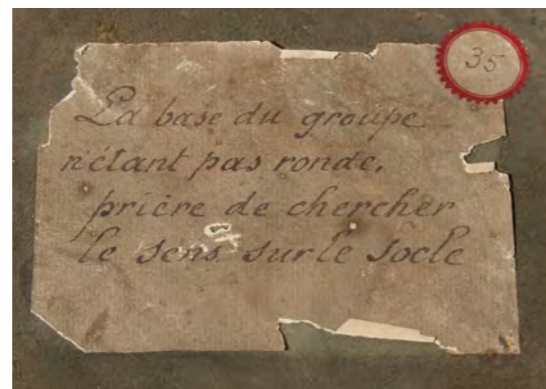 35
La base du groupe
n'étant pas ronde,
prière de chercher
le sens sur le socle